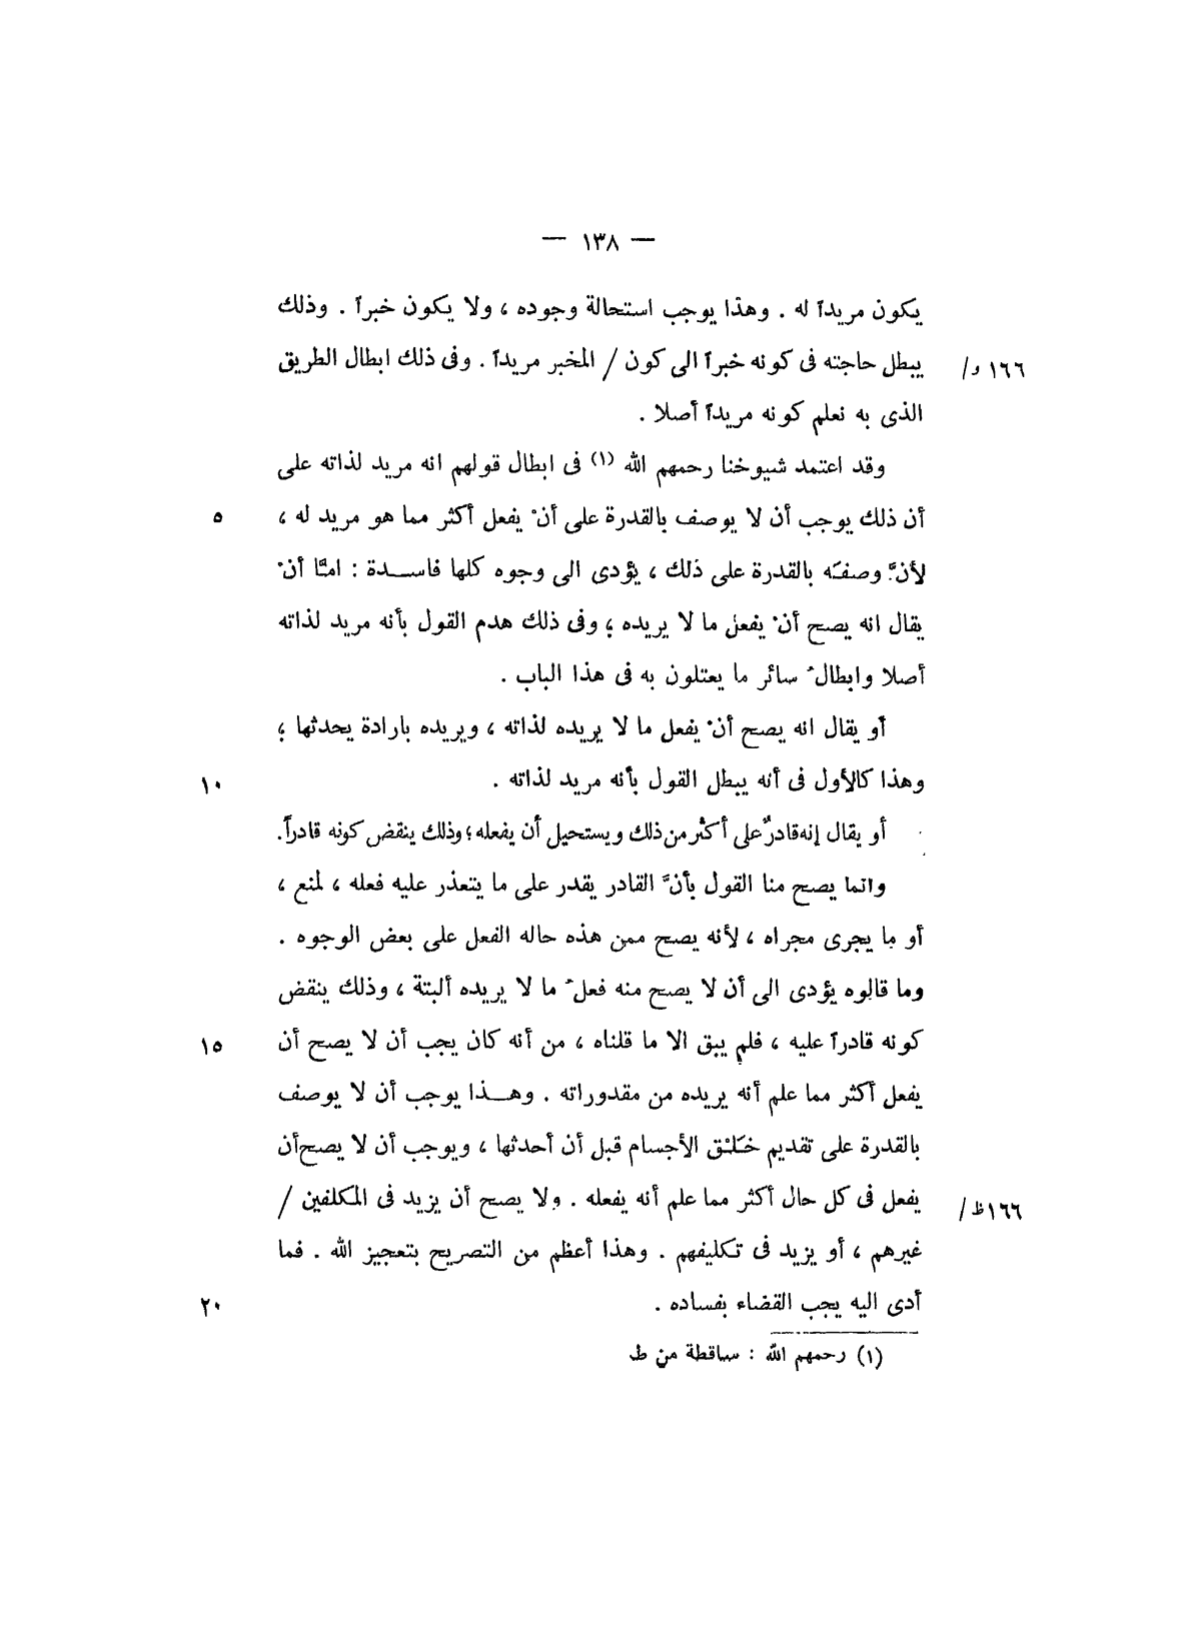 — ١٣٨ —
يكون مريداً له . وهذا يوجب استحالة وجوده ، ولا يكون خبراً . وذلك
يبطل حاجته فى كونه خبراً الى كون / المخبر مريداً . وفى ذلك ابطال الطريق ١٦٦ و/
الذى به نعلم كونه مريداً أصلا .
وقد اعتمد شيوخنا رحمهم الله (١) فى ابطال قولهم انه مريد لذاته على
أن ذلك يوجب أن لا يوصف بالقدرة على أنْ يفعل أكثر مما هو مريد له ، ٥
لأنَّ وصفَه بالقدرة على ذلك ، يؤدى الى وجوه كلها فاســدة : امَّا أنْ
يقال انه يصح أنْ يفعل ما لا يريده ؛ وفى ذلك هدم القول بأنه مريد لذاته
أصلا وابطالُ سائر ما يعتلون به فى هذا الباب .
أو يقال انه يصح أنْ يفعل ما لا يريده لذاته ، ويريده بارادة يحدثها ؛
وهذا كالأول فى أنه يبطل القول بأنه مريد لذاته . ١٠
أو يقال إنه قادرٌ على أكثر من ذلك ويستحيل أن يفعله ؛ وذلك ينقض كونه قادراً.
وانما يصح منا القول بأنَّ القادر يقدر على ما يتعذر عليه فعله ، لمنع ،
أو ما يجرى مجراه ، لأنه يصح ممن هذه حاله الفعل على بعض الوجوه .
وما قالوه يؤدى الى أن لا يصح منه فعلُ ما لا يريده ألبتة ، وذلك ينقض
كونه قادراً عليه ، فلم يبق الا ما قلناه ، من أنه كان يجب أن لا يصح أن ١٥
يفعل أكثر مما علم أنه يريده من مقدوراته . وهــذا يوجب أن لا يوصف
بالقدرة على تقديم خَلْق الأجسام قبل أن أحدثها ، ويوجب أن لا يصح أن
يفعل فى كل حال أكثر مما علم أنه يفعله . ولا يصح أن يزيد فى المكلفين / ١٦٦ظ/
غيرهم ، أو يزيد فى تكليفهم . وهذا أعظم من التصريح بتعجيز الله . فما
أدى اليه يجب القضاء بفساده . ٢٠
(١) رحمهم الله : ساقطة من ط